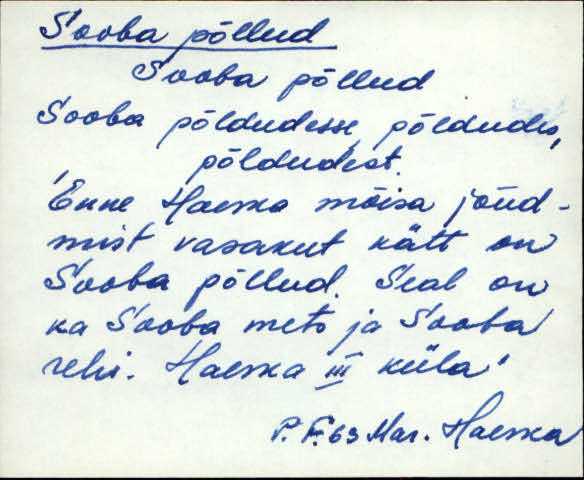 Sooba põllud
Sooba põllud
Sooba põldudesse, põldudes,
põldudest.
'Enne Haeska mõisa jõud-
mist vasakut kätt on
Sooba põllud. Seal on
ka Sooba mets ja Sooba
rehi. Haeska III küla'
P. F. 63 Mar. Haeska